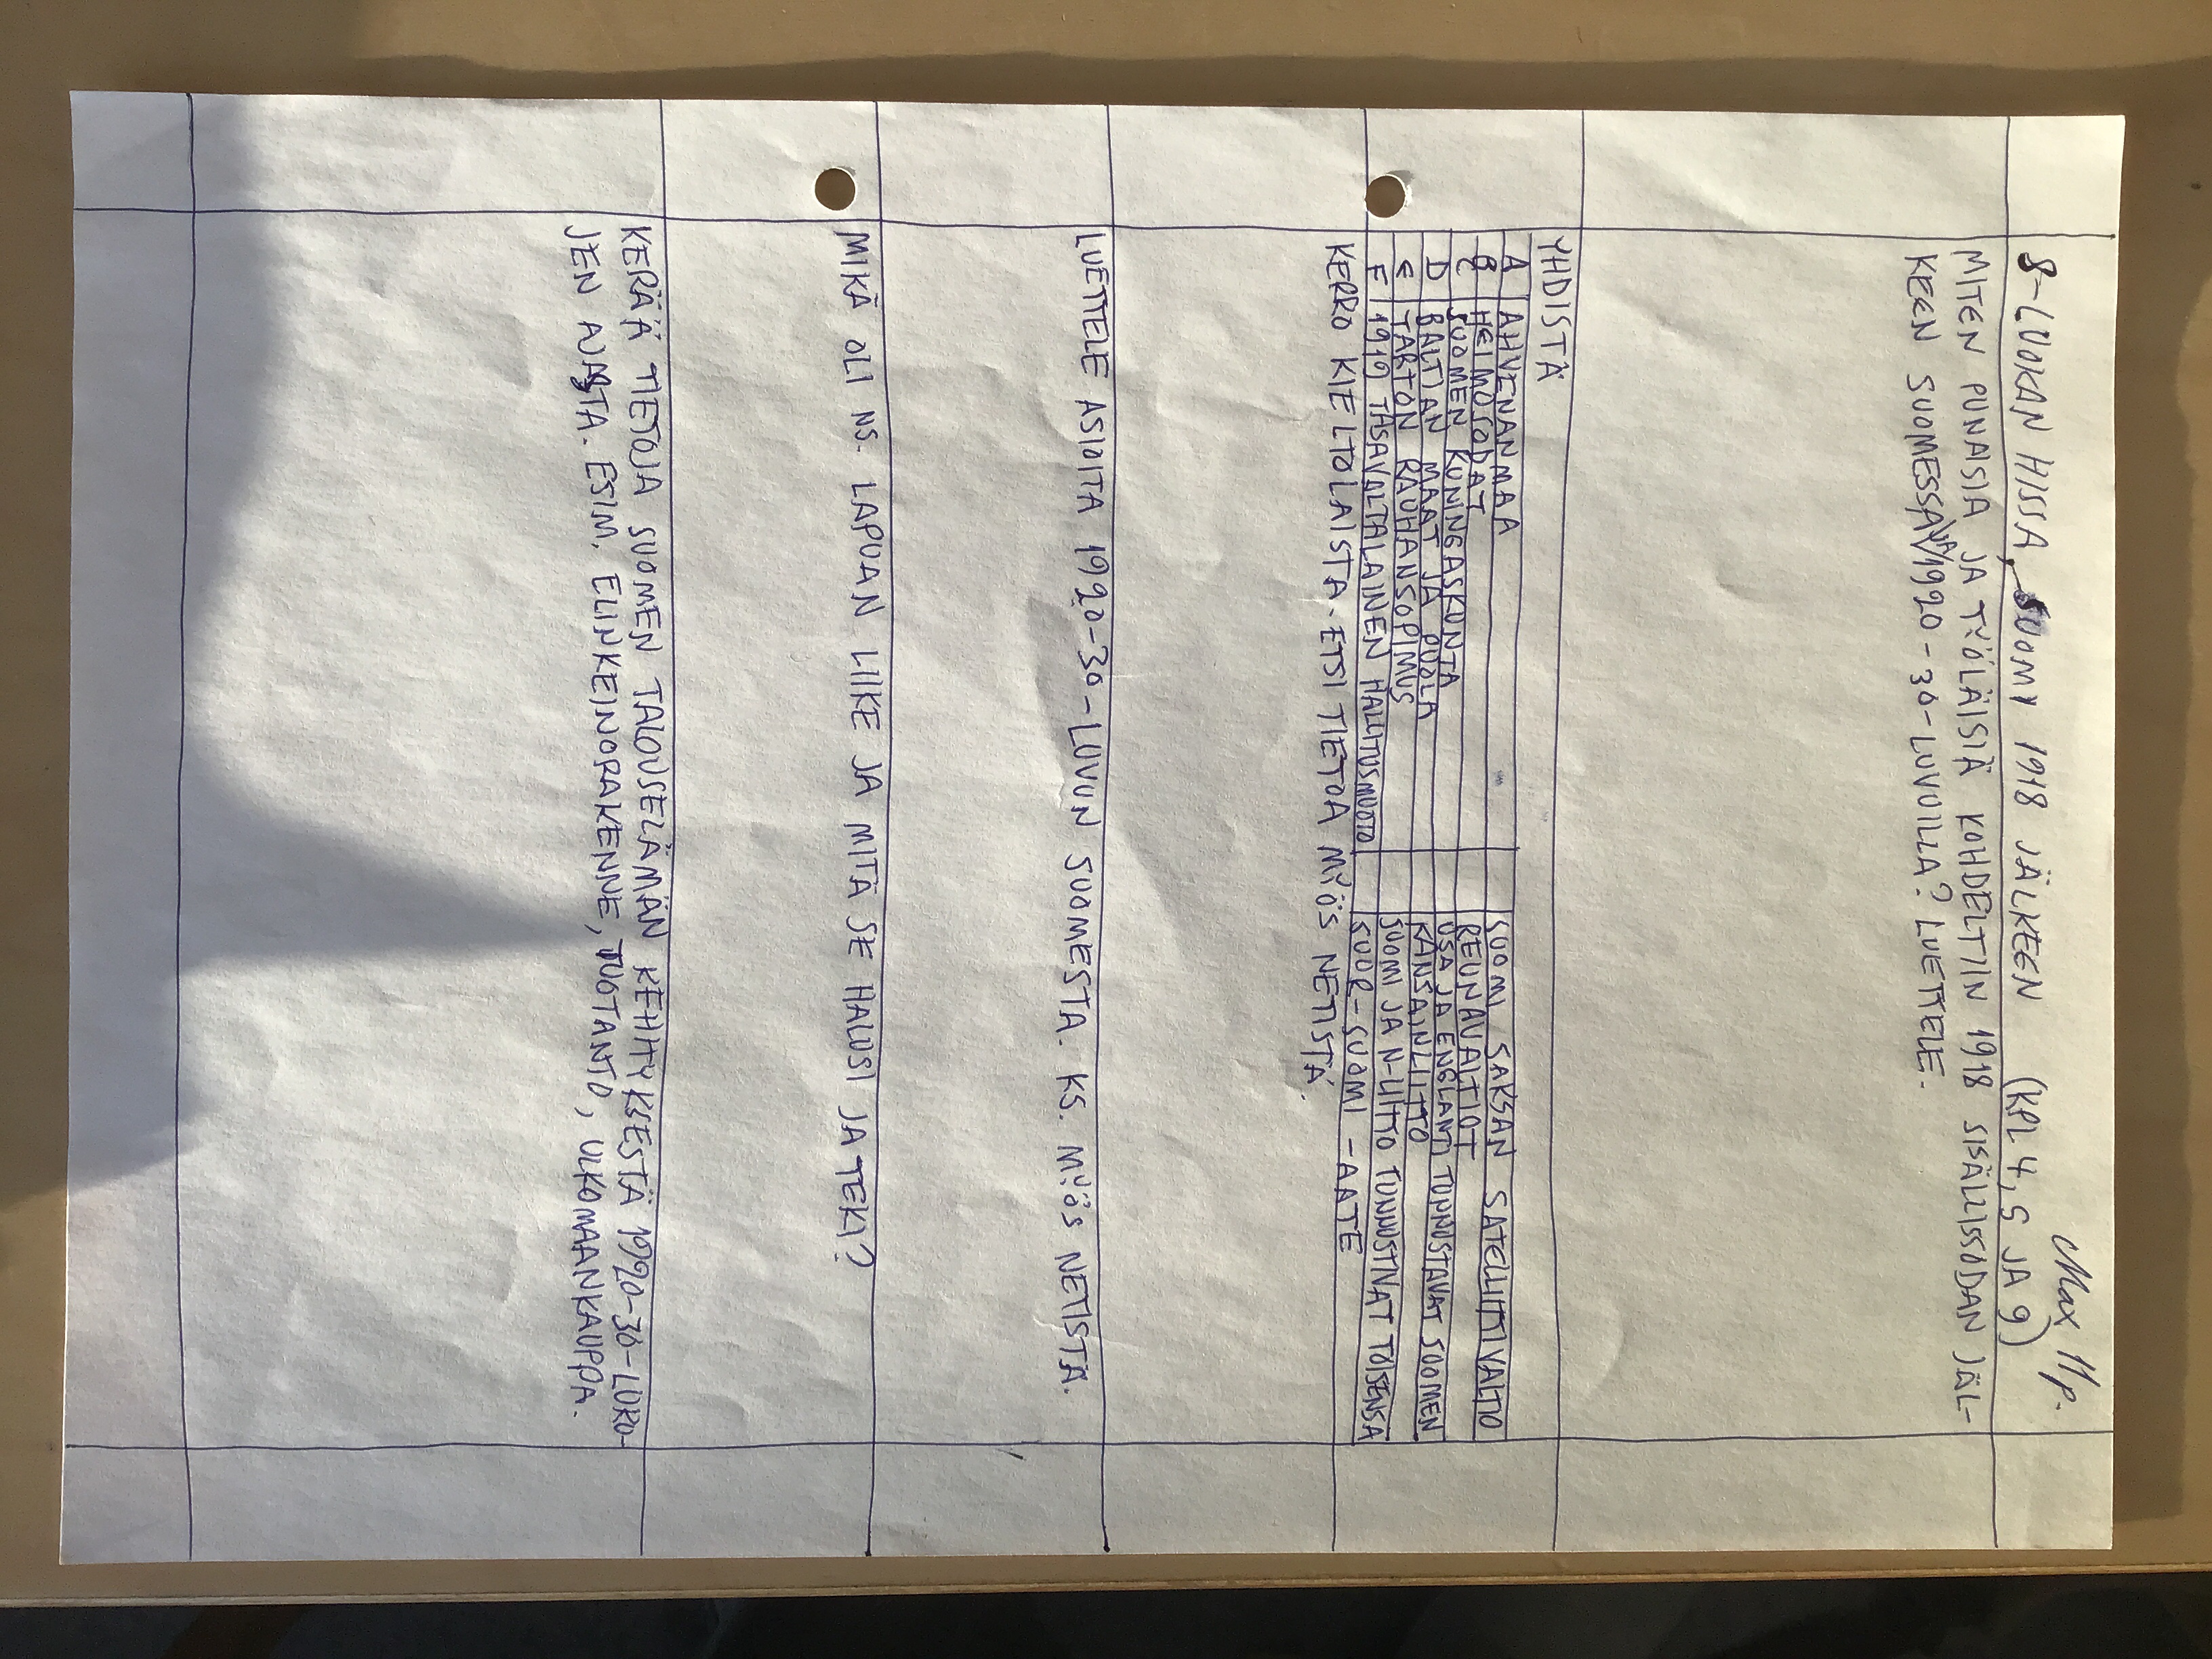 Max Mp.
8-LUOKAN HISSA, SUOMI 1918 JÄLKEEN (KPL 4, 5 JA 9)
MITEN PUNAISIA JA TYÖLÄISIÄ KOHDELTIIN 1918 SISÄLLISSODAN JÄL-
KEEN SUOMESSA JA 1920-30-LUVUILLA? LUETTELE.
YHDISTÄ
A AHVENANMAA SUOMI SAKSAN SATELLIITTIVALTIO
B HEIMOSODAT REUNAVALTIOT
C SUOMEN KUNINGASKUNTA USA JA ENGLANTI TUNNUSTAVAT SUOMEN
D BALTIAN MAAT JA PUOLA KANSAINLIITTO
E TARTON RAUHANSOPIMUS SUOMI JA N-LIITTO TUNNUSTIVAT TOISENSA
F 1919 TASAVALTALAINEN HALLITUSMUOTO SUUR-SUOMI -AATE
KERRO KIELTOLAISTA. ETSI TIETOA MYÖS NETISTÄ.
LUETTELE ASIOITA 1920-30-LUVUN SUOMESTA. KS. MYÖS NETISTÄ.
MIKÄ OLI NS. LAPUAN LIIKE JA MITÄ SE HALUSI JA TEKI?
KERÄÄ TIETOJA SUOMEN TALOUSELÄMÄN KEHITYKSESTÄ 1920-30-LUKU-
JEN AJALTA. ESIM. ELINKEINORAKENNE, TUOTANTO, ULKOMAANKAUPPA.